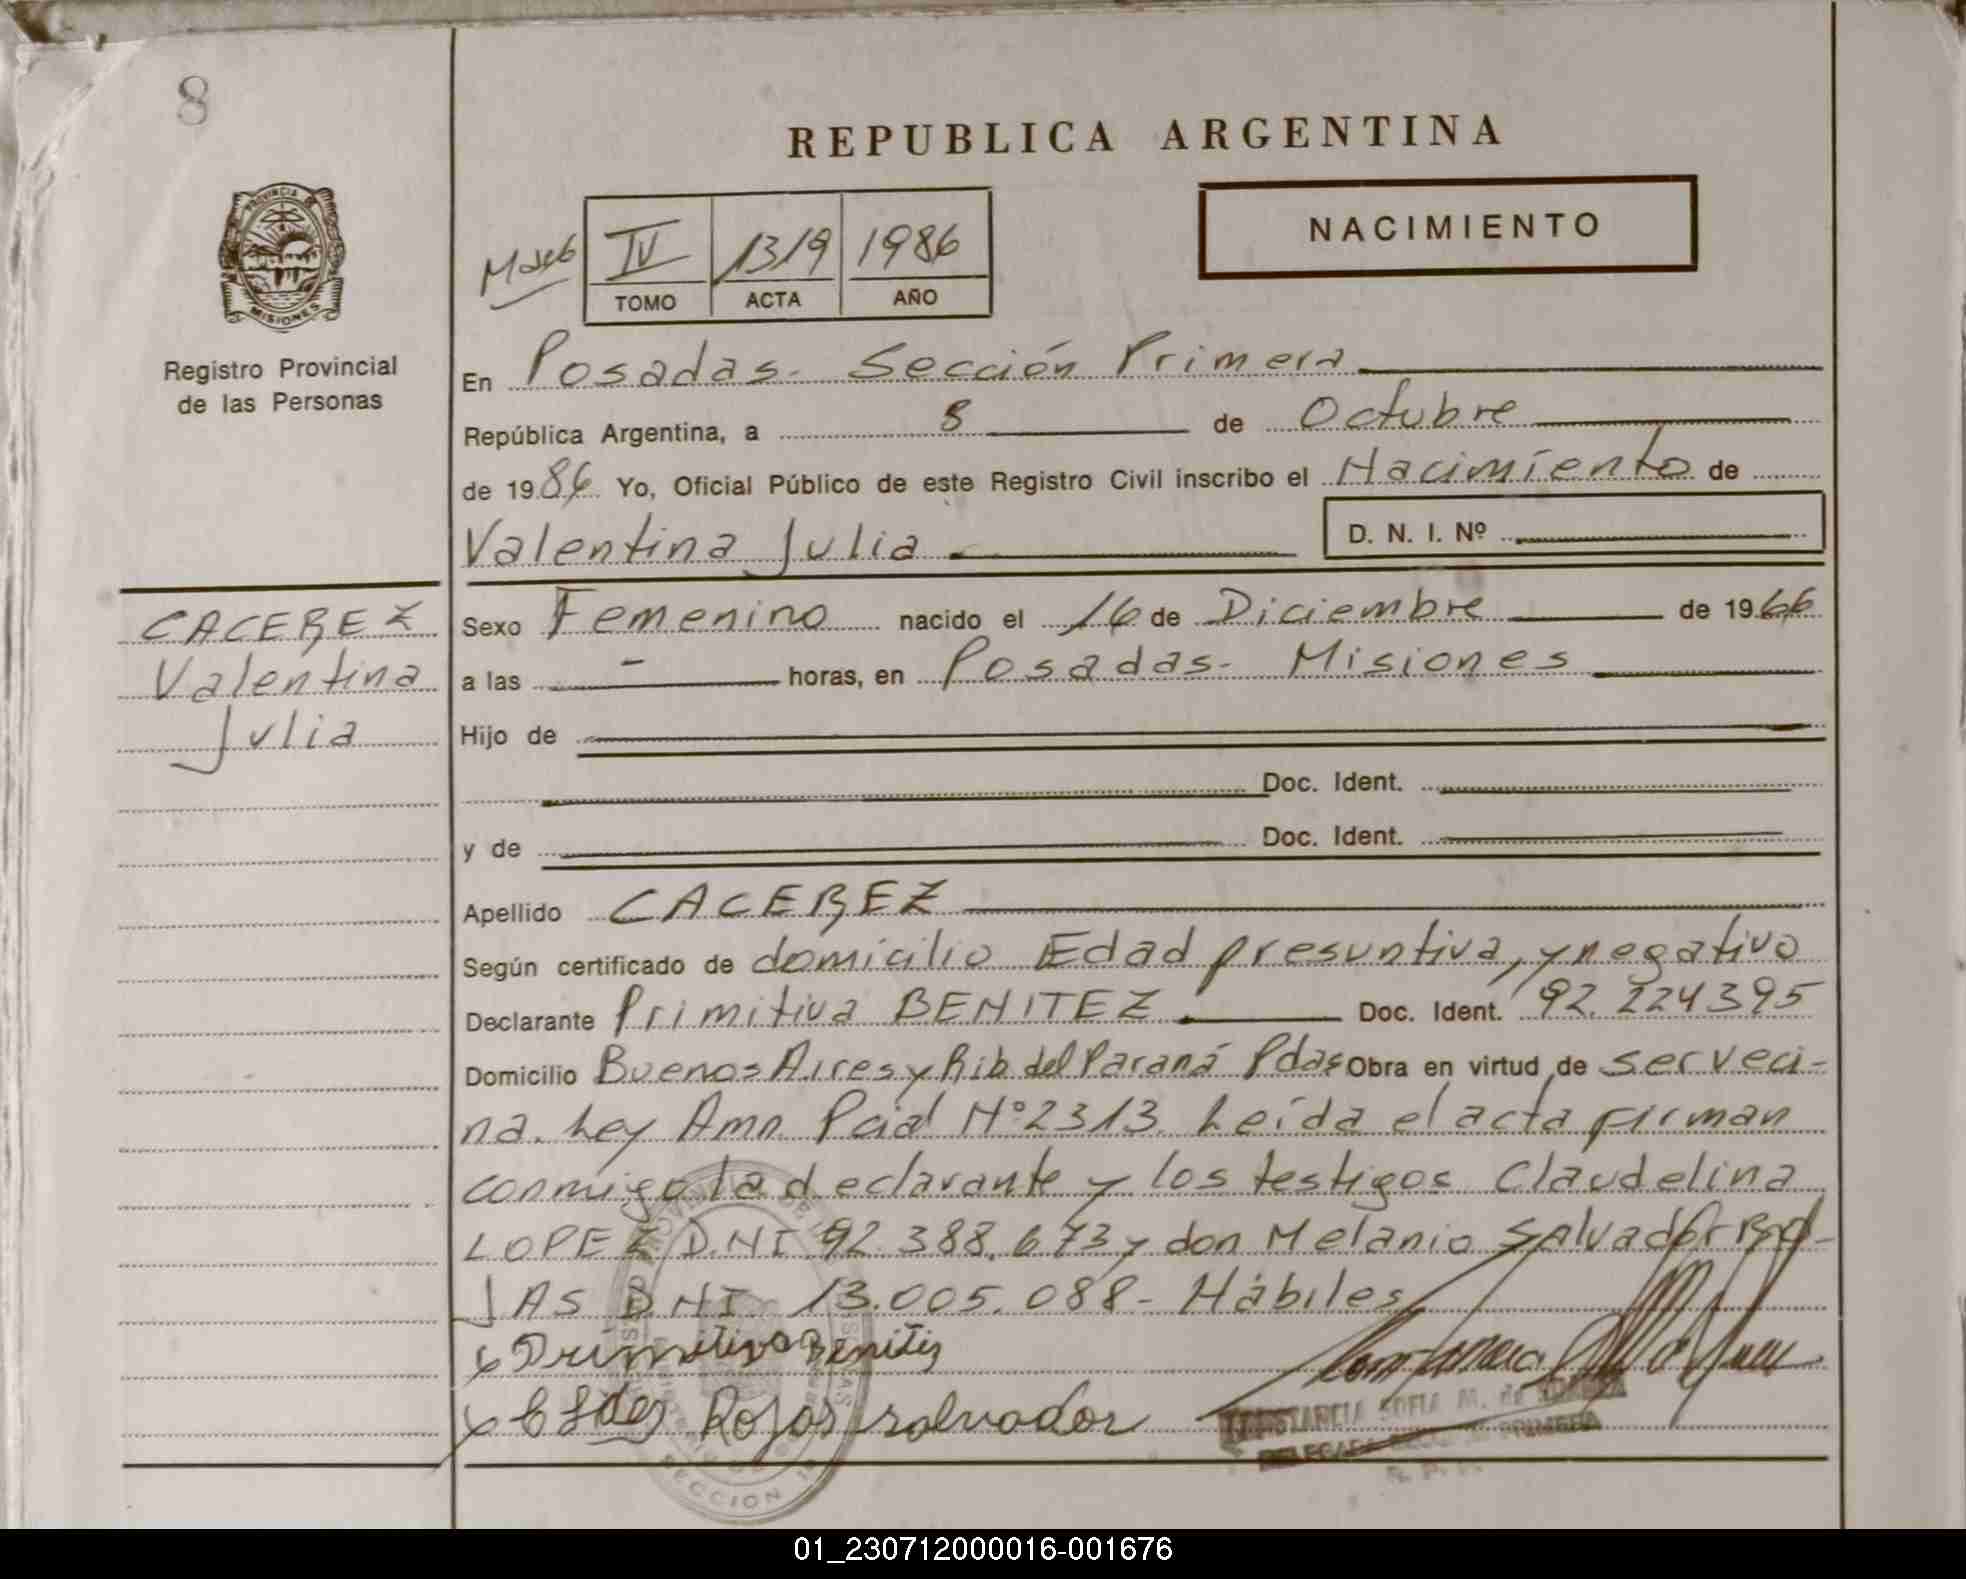 8
REPUBLICA ARGENTINA
NACIMIENTO
IV 1319 1986
TOMO ACTA AÑO
PROVINCIA
MISIONES
Registro Provincial
de las Personas
En Posadas. Sección Primera
República Argentina, a 8 de Octubre
de 1986 Yo, Oficial Público de este Registro Civil inscribo el Nacimiento de
Valentina Julia
D. N. I. Nº
CACEREZ
Valentina
Julia
Sexo Femenino nacido el 16 de Diciembre de 1966
a las - horas, en Posadas- Misiones
Hijo de
Doc. Ident.
y de Doc. Ident.
Apellido CACEREZ
Según certificado de domicilio Edad presuntiva, y negativo
Declarante Primitiva BENITEZ Doc. Ident. 92.224395
Domicilio Buenos Aires y Rib del Paraná Pdas Obra en virtud de ser veci-
na. Ley Amn. Pcial Nº 2313. Leída el acta firman
conmigo la declarante y los testigos Claudelina
LOPEZ D.NI 92.388.673 y don Melanio Salvador RO-
JAS DNI. 13.005.088- Hábiles
x Primitiva Benites
Rojas salvador
CONSTANCIA SOFIA M. de
DELEGADA SECCION PRIMERA
R. P. P.
SECCION 1
01_230712000016-001676